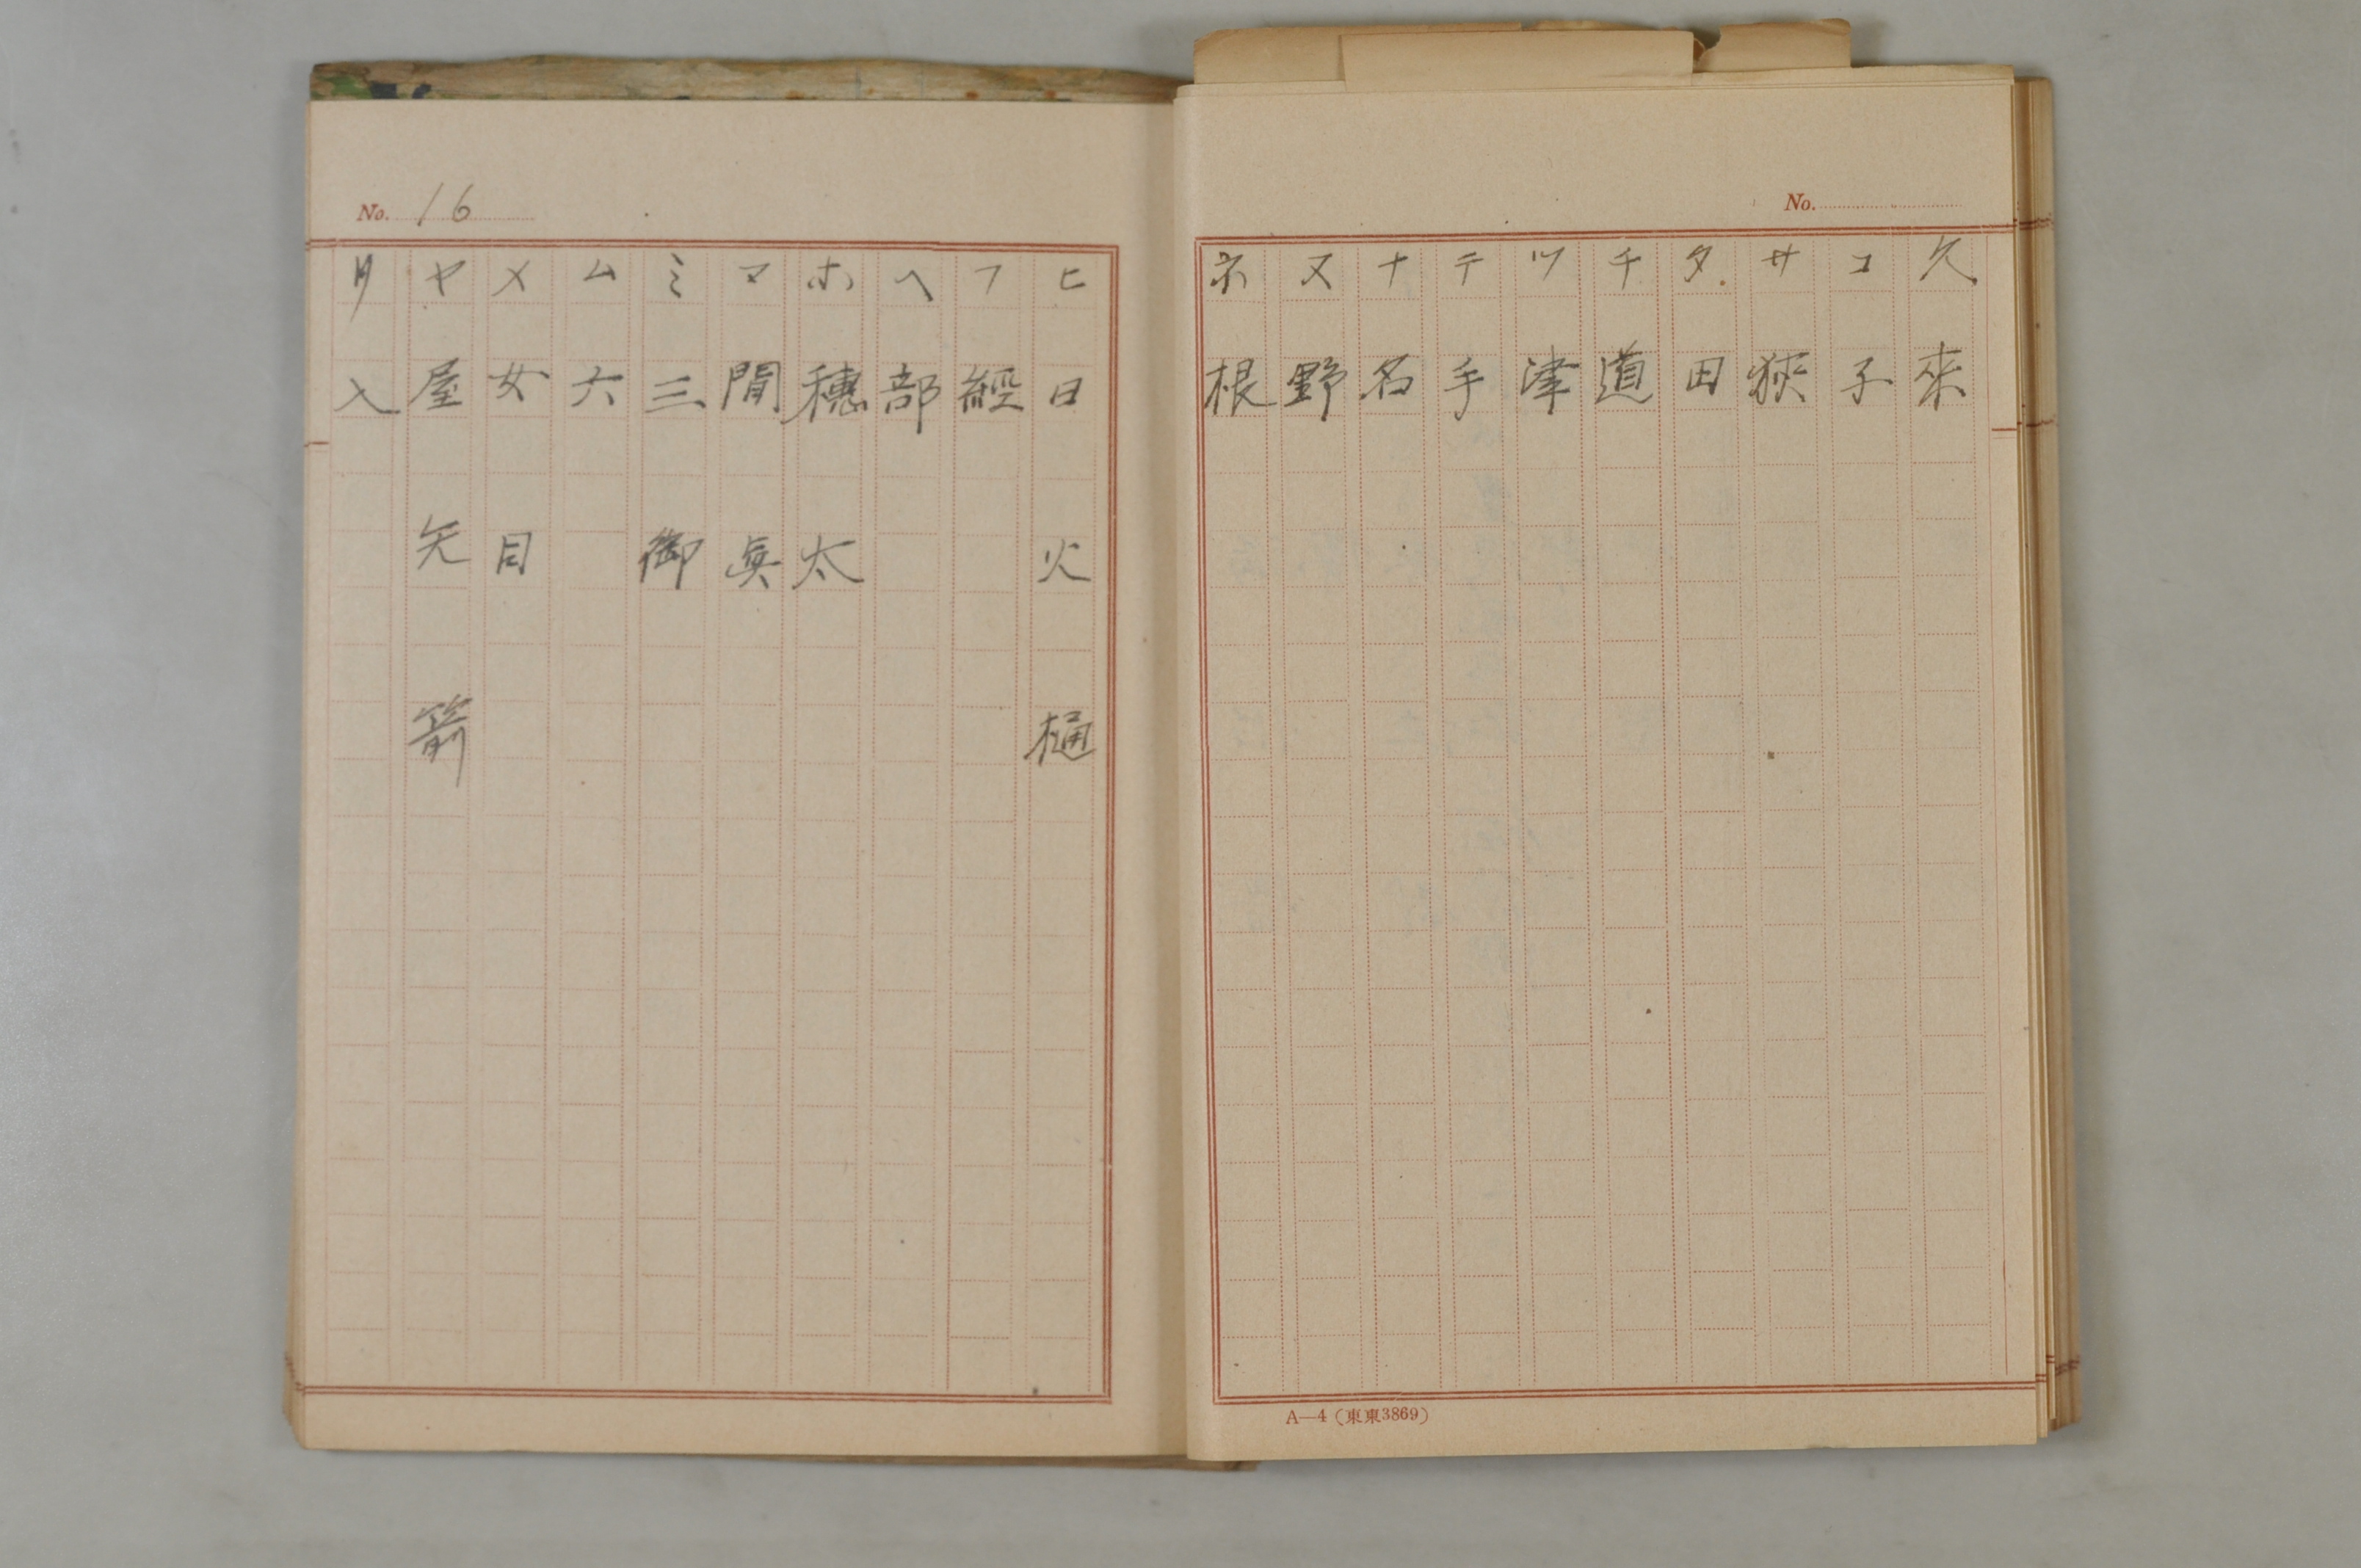 No.
久 來
コ 子
サ 狹
タ 田
チ 道
ツ 津
テ 手
ナ 名
ヌ 野
ネ 根
A—4 (東東3869)
No. 16
ヒ 日 火 樋
フ 經
ヘ 部
ホ 穗 太
マ 間 眞
ミ 三 御
ム 六
メ 女 目
ヤ 屋 矢 箭
入